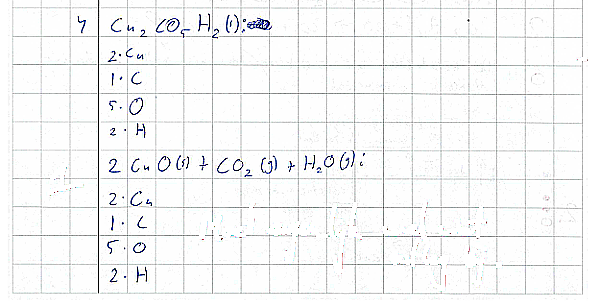 4 Cu₂ CO₅ H₂ (s):
2· Cu
1· C
5· O
2· H
2 CuO(s) + CO₂ (g) + H₂O(g):
2· Cu
1· C
5· O
2· H